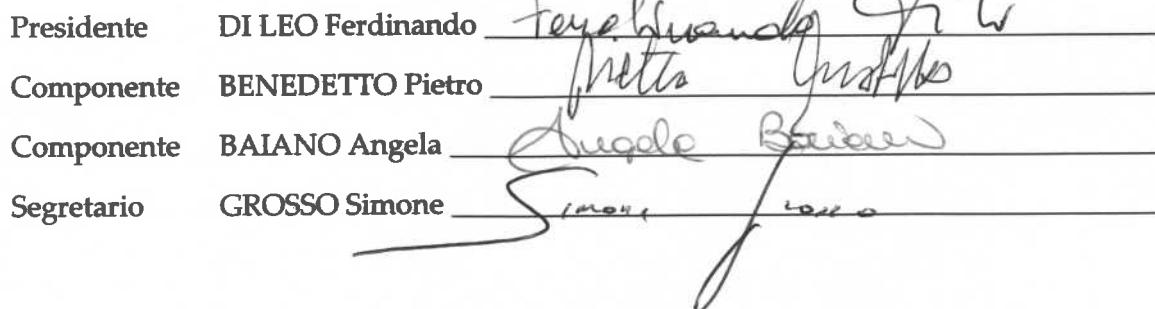 Presidente DI LEO Ferdinando Ferdinando Di Leo
Componente BENEDETTO Pietro Pietro
Componente BAIANO Angela Angela Baiano
Segretario GROSSO Simone Simone Grosso